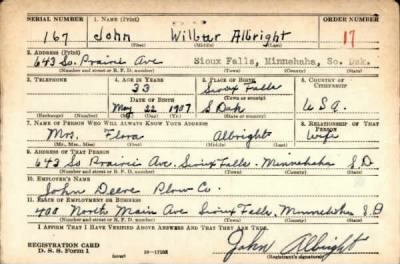 SERIAL NUMBER 1. NAME (Print) ORDER NUMBER
167 John Wilbur Albright 17
(First) (Middle) (Last)
2. ADDRESS (Print)
643 So. Prairie Ave Sioux Falls, Minnehaha, So. Dak.
(Number and street or R. F. D. number) (Town) (County) (State)
3. TELEPHONE 4. AGE IN YEARS 5. PLACE OF BIRTH 6. COUNTRY OF CITIZENSHIP
33 Sioux Falls
(Town or county)
DATE OF BIRTH
May 22 1907 S Dak USA
(Exchange) (No.) (Mo.) (Day) (Yr.) (State or country)
7. NAME OF PERSON WHO WILL ALWAYS KNOW YOUR ADDRESS 8. RELATIONSHIP OF THAT PERSON
Mrs. Flora Albright Wife
(Mr., Mrs., Miss) (First) (Middle) (Last)
9. ADDRESS OF THAT PERSON
643 So Prairie Ave. Sioux Falls. Minnehaha S.D
(Number and street or R. F. D. number) (Town) (County) (State)
10. EMPLOYER'S NAME
John Deere Plow Co.
11. PLACE OF EMPLOYMENT OR BUSINESS
400 North Main Ave Sioux Falls. Minnehaha S.D
(Number and street or R. F. D. number) (Town) (County) (State)
I AFFIRM THAT I HAVE VERIFIED ABOVE ANSWERS AND THAT THEY ARE TRUE.
REGISTRATION CARD
D. S. S. Form 1 (over) John Albright
(Registrant's signature)